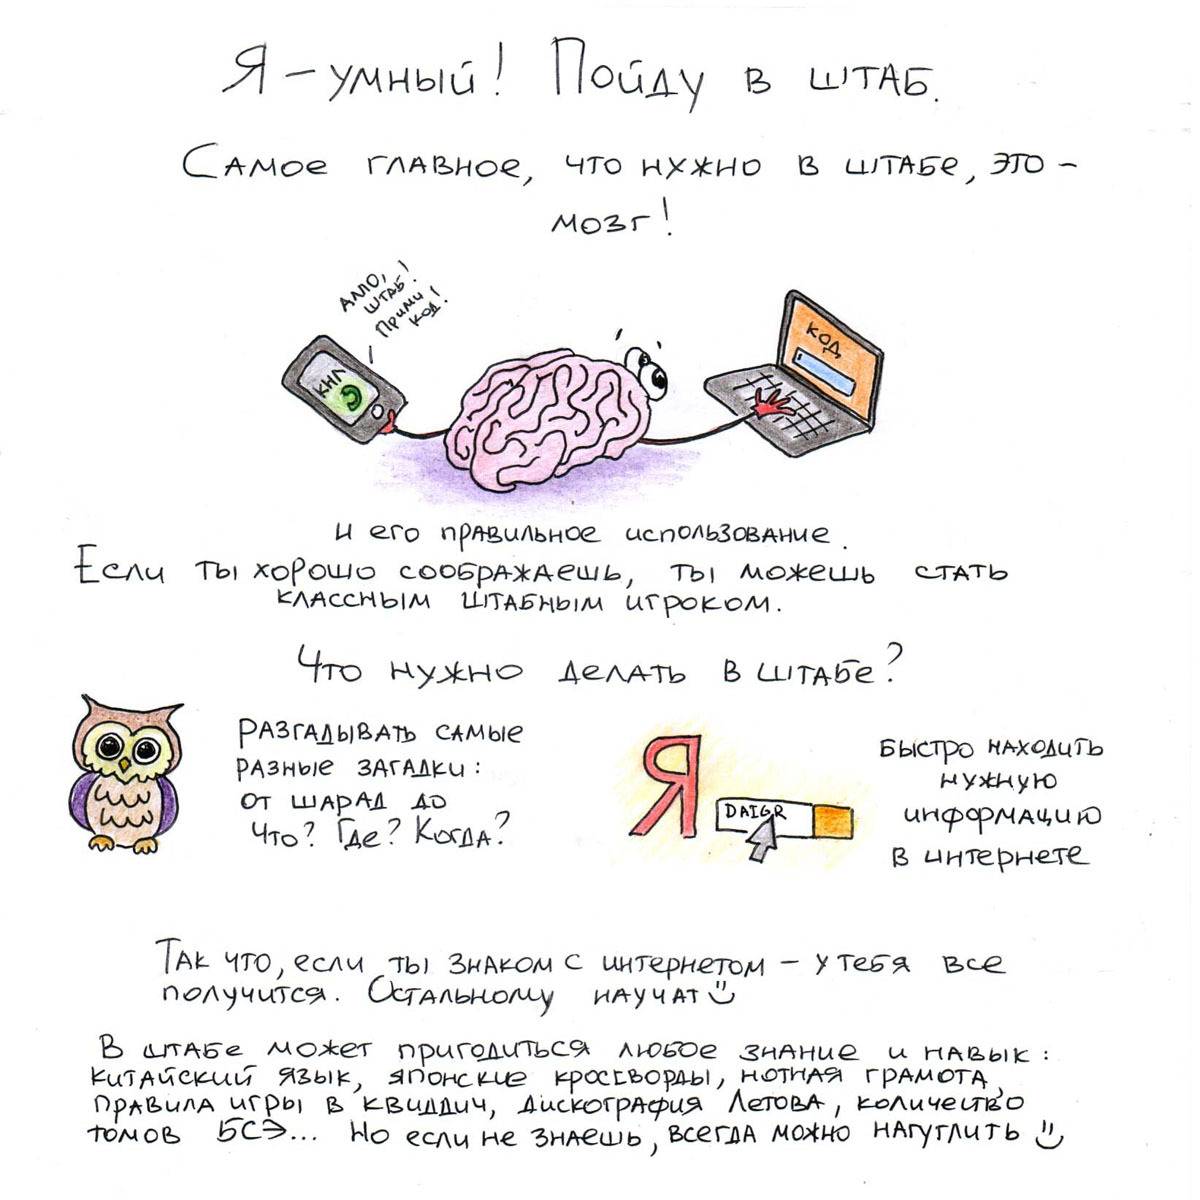 Я – умный! Пойду в штаб.
Самое главное, что нужно в штабе, это –
мозг!
Алло,
штаб!
Прими
код!
КНЛ
КОД
и его правильное использование.
Если ты хорошо соображаешь, ты можешь стать
классным штабным игроком.
Что нужно делать в штабе?
Разгадывать самые
разные загадки:
от шарад до
Что? Где? Когда?
Я
DAIGR
Быстро находить
нужную
информацию
в интернете
Так что, если ты знаком с интернетом – у тебя все
получится. Остальному научат
В штабе может пригодиться любое знание и навык:
китайский язык, японские кроссворды, нотная грамота,
правила игры в квиддич, дискография Летова, количество
томов БСЭ... Но если не знаешь, всегда можно нагуглить